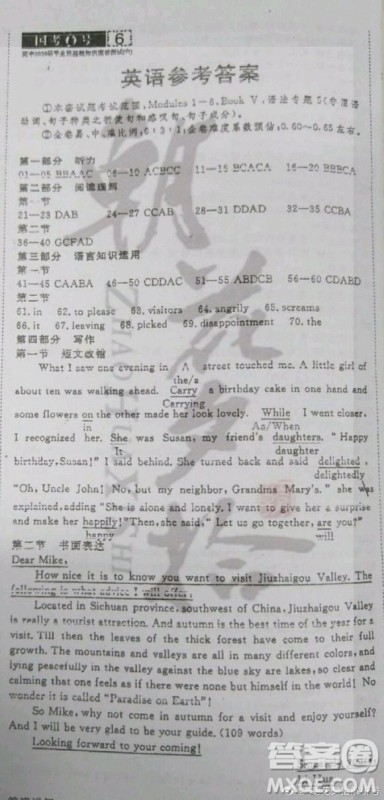 国考1号 6
英语参考答案
①本套试题考试范围,Modules 1-6,Book V,语法专题5(非谓语
动词、句子种类之间的复句和句子成分)。
②全卷易、中、难比例,6:3:1,全卷难度系数预估:0.60-0.65左右。
第一部分 听力
01-05 BBAAC 06-10 ACBCC 11-15 BCACA 16-20 BBBCA
第二部分 阅读理解
第一节
21-23 DAB 24-27 CCAB 28-31 DDAD 32-35 CCBA
第二节
36-40 GCFAD
第三部分 语言知识运用
第一节
41-45 CAABA 46-50 CDDAC 51-55 ABDCB 56-60 CDABD
第二节
61. in 62. to please 63. visitors 64. angrily 65. screams
66. it 67. leaving 68. picked 69. disappointment 70. the
第四部分 写作
第一节 短文改错
What I saw one evening in ∧ street touched me. A little girl of
the/a
about ten was walking ahead. Carry a birthday cake in one hand and
Carrying
some flowers on the other made her look lovely. While I went closer,
in As/When
I recognized her. She was Susan, my friend's daughters. "Happy
It daughter
birthday, Susan!" I said behind. She turned back and said delighted,
delightedly
"Oh, Uncle John! No, but my neighbor, Grandma Mary's." she was
explaining and added "She is alone and lonely. I want to give her a surprise
and make her happily!" Then, she said. "Let us go together, are you?"
happy will
第二节 书面表达
Dear Mike,
How nice it is to know you want to visit Jiuzhaigou Valley. The
following is what advice I will offer!
Located in Sichuan province, southwest of China, Jiuzhaigou Valley
is really a tourist attraction. And autumn is the best time of the year for a
visit. Till then, the leaves of the thick forest have come to their full
beauty. The mountains and valleys are all in many different colors, and
lying peacefully in the valleys against the blue sky are lakes, so clear and
calming that one feels as if there were none but himself in the world! No
wonder it is called "Paradise on Earth"!
So Mike, why not come in autumn for a visit and enjoy yourself?
And I will be very glad to be your guide. (109 words)
Looking forward to your coming!
Li Hua
答案圈
MXQE.COM